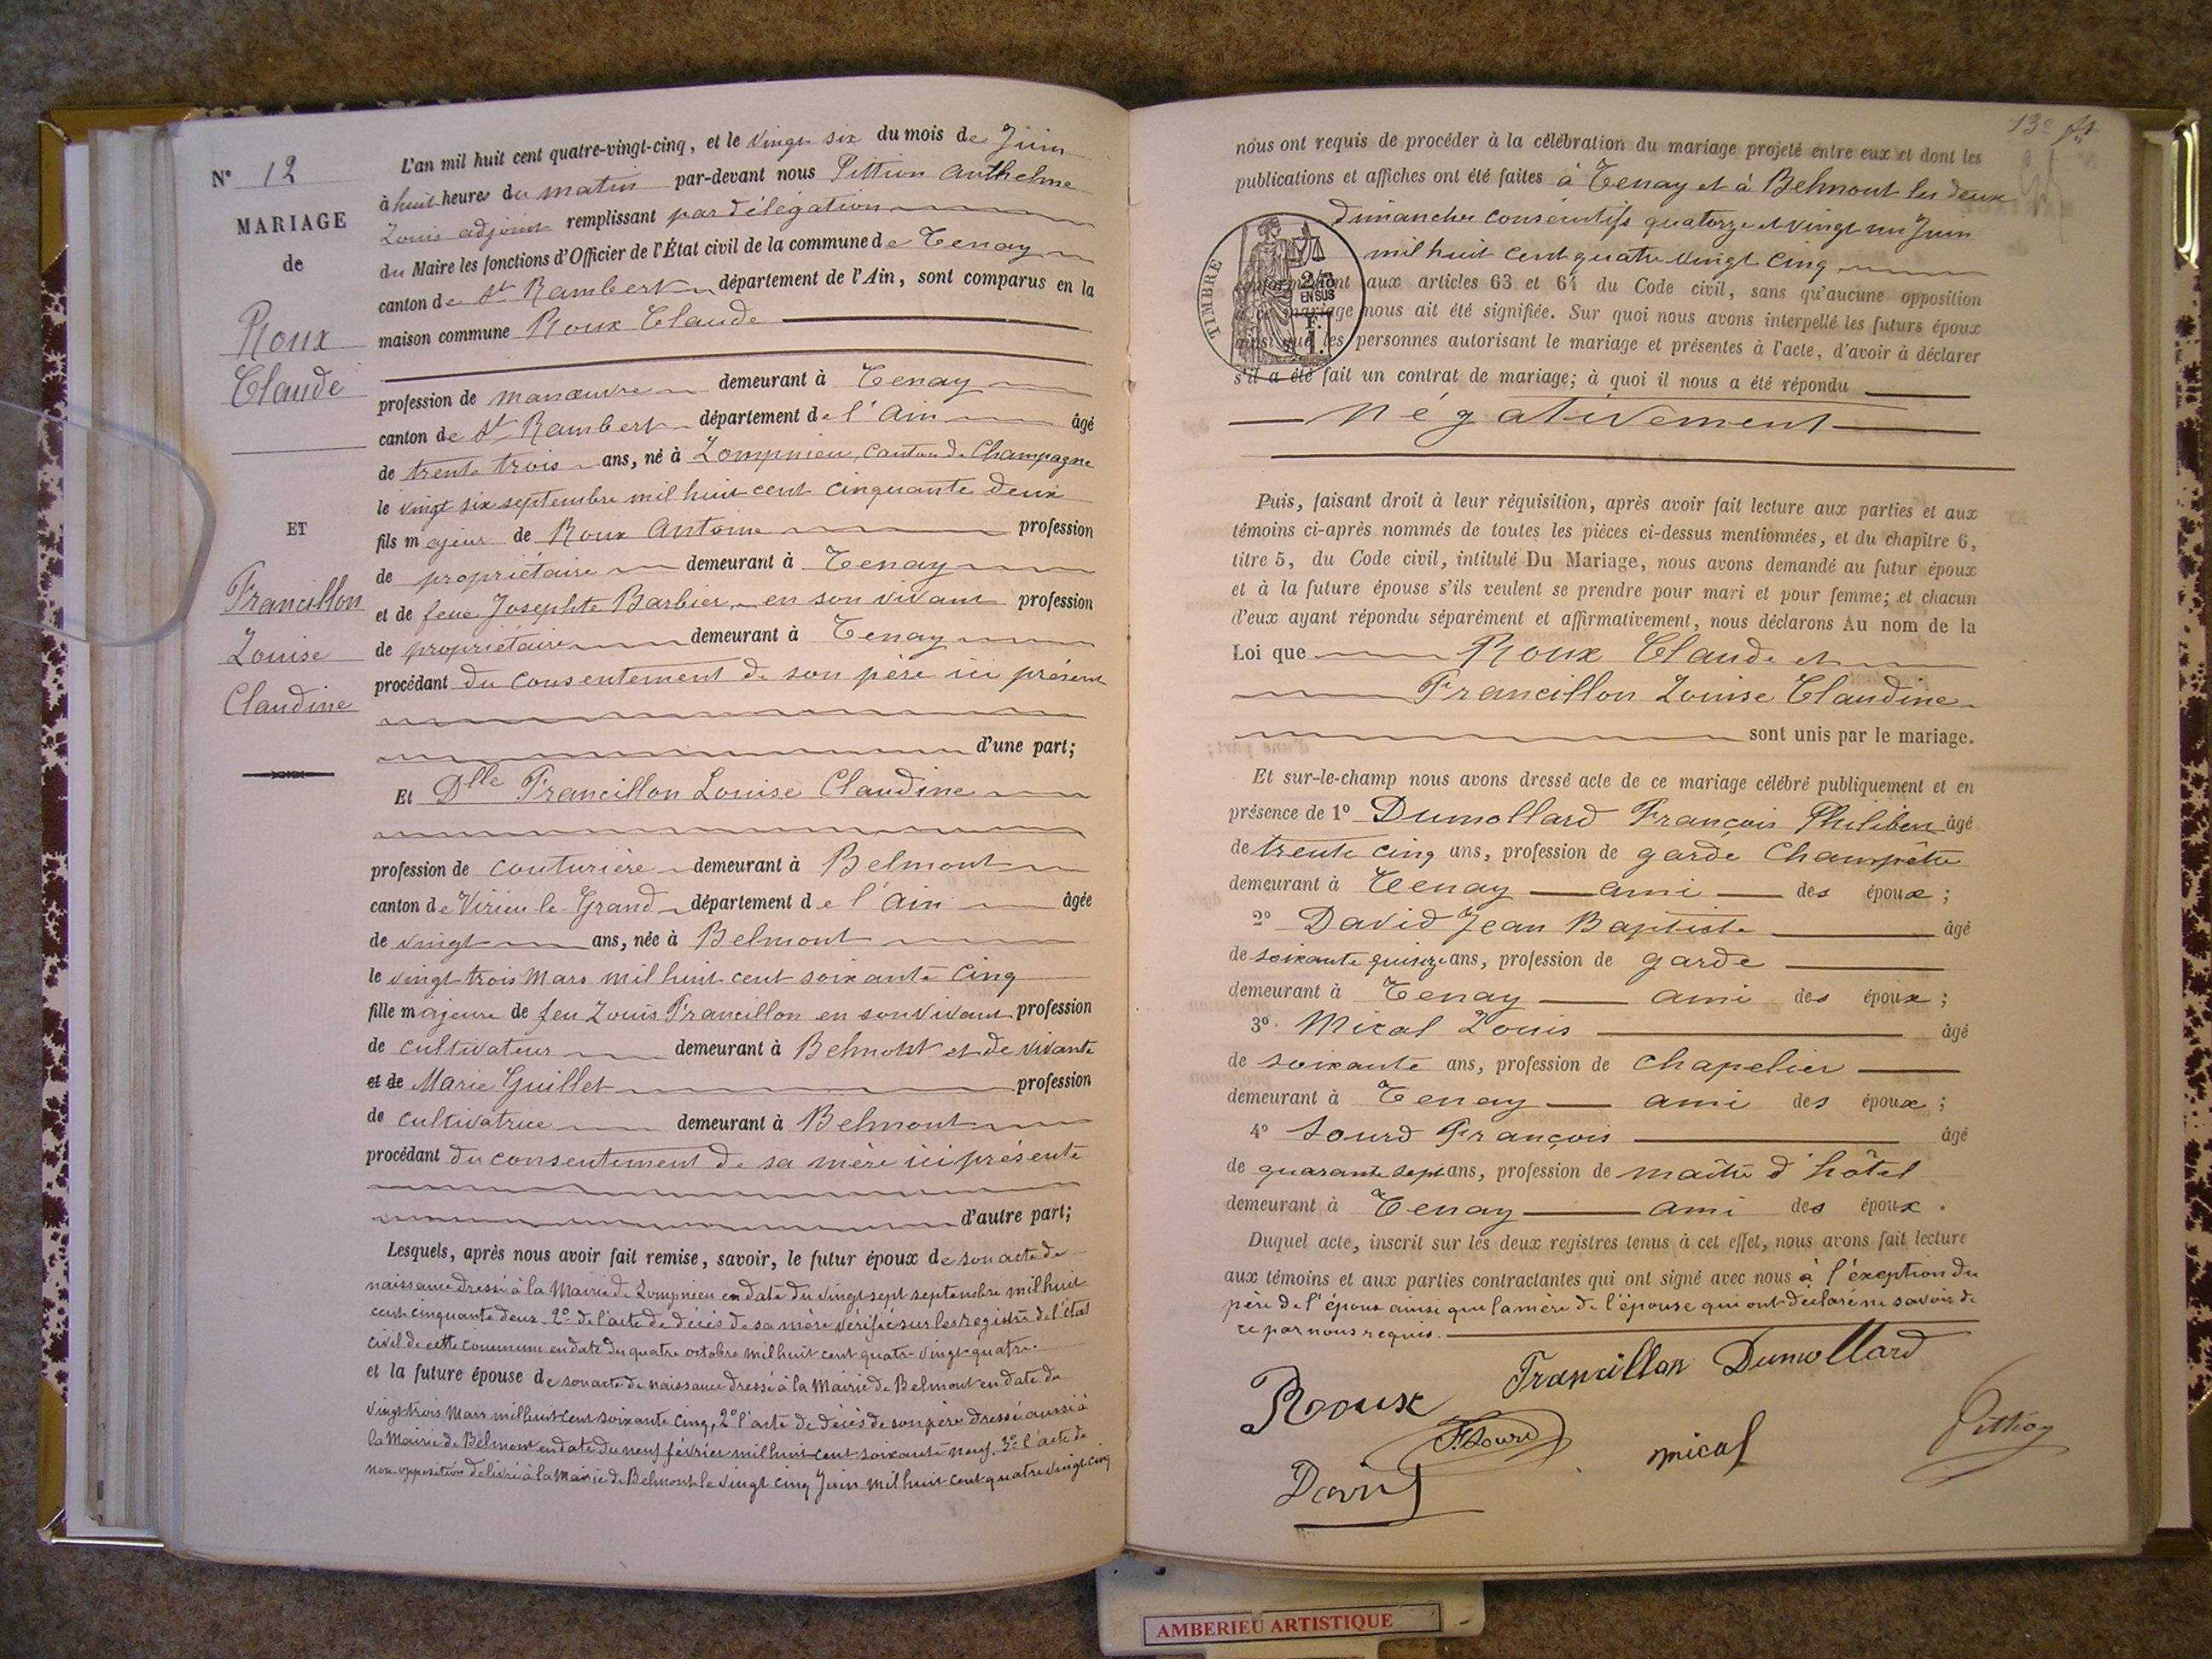 N° 12
MARIAGE
de
Roux
Claude
ET
Francillon
Louise
Claudine
L'an mil huit cent quatre-vingt-cinq, et le vingt six du mois de Juin
à huit heures du matin par-devant nous Pittion Anthelme
Louis adjoint remplissant par délégation
du Maire les fonctions d'Officier de l'État civil de la commune de Tenay
canton de St Rambert département de l'Ain, sont comparus en la
maison commune Roux Claude
profession de manœuvre demeurant à Tenay
canton de St Rambert département de l'Ain âgé
de trente trois ans, né à Lompnieu, canton de Champagne
le vingt six septembre mil huit cent cinquante deux
fils majeur de Roux Antoine profession
de propriétaire demeurant à Tenay
et de feue Josephte Barbier, en son vivant profession
de propriétaire demeurant à Tenay
procédant du consentement de son père ici présent
d'une part;
Et Dlle Francillon Louise Claudine
profession de couturière demeurant à Belmont
canton de Virieu-le-Grand département de l'Ain âgée
de vingt ans, née à Belmont
le vingt trois Mars mil huit cent soixante cinq
fille majeure de feu Louis Francillon en son vivant profession
de cultivateur demeurant à Belmont et de vivante
et de Marie Guillet profession
de cultivatrice demeurant à Belmont
procédant du consentement de sa mère ici présente
d'autre part;
Lesquels, après nous avoir fait remise, savoir, le futur époux de son acte de
naissance dressé à la Mairie de Lompnieu en date du vingt sept septembre mil huit
cent cinquante deux. 2° de l'acte de décès de sa mère vérifié sur les registres de l'état
civil de cette commune en date du quatre octobre mil huit cent quatre vingt quatre.
et la future épouse de son acte de naissance dressé à la Mairie de Belmont en date du
vingt trois Mars mil huit cent soixante cinq, 2° l'acte de décès de son père dressé aussi à
la Mairie de Belmont en date du neuf février mil huit cent soixante neuf. 3° l'acte de
non-opposition délivré à la mairie de Belmont le vingt cinq Juin mil huit cent quatre vingt cinq
13e
nous ont requis de procéder à la célébration du mariage projeté entre eux et dont les
publications et affiches ont été faites à Tenay et à Belmont les deux
dimanches consécutifs quatorze et vingt un Juin
mil huit cent quatre vingt cinq
conformément aux articles 63 et 64 du Code civil, sans qu'aucune opposition
à ce mariage nous ait été signifiée. Sur quoi nous avons interpellé les futurs époux
ainsi que les personnes autorisant le mariage et présentes à l'acte, d'avoir à déclarer
s'il a été fait un contrat de mariage; à quoi il nous a été répondu
négativement
TIMBRE
2/10
EN SUS
F.
1.
Puis, faisant droit à leur réquisition, après avoir fait lecture aux parties et aux
témoins ci-après nommés de toutes les pièces ci-dessus mentionnées, et du chapitre 6,
titre 5, du Code civil, intitulé Du Mariage, nous avons demandé au futur époux
et à la future épouse s'ils veulent se prendre pour mari et pour femme; et chacun
d'eux ayant répondu séparément et affirmativement, nous déclarons Au nom de la
Loi que Roux Claude et
Francillon Louise Claudine
sont unis par le mariage.
Et sur-le-champ nous avons dressé acte de ce mariage célébré publiquement et en
présence de 1° Dumollard François Philibert âgé
de trente cinq ans, profession de garde Champêtre
demeurant à Tenay ami des époux;
2° David Jean Baptiste âgé
de soixante quinze ans, profession de garde
demeurant à Tenay ami des époux;
3° Mical Louis âgé
de soixante ans, profession de chapelier
demeurant à Tenay ami des époux;
4° Sourd François âgé
de quarante sept ans, profession de maître d'hôtel
demeurant à Tenay ami des époux.
Duquel acte, inscrit sur les deux registres tenus à cet effet, nous avons fait lecture
aux témoins et aux parties contractantes qui ont signé avec nous à l'éxception du
père de l'époux ainsi que la mère de l'épouse qui ont déclaré ne savoir de
ce par nous requis.
Roux Francillon Dumollard
F. Sourd mical Pittion
David
AMBERIEU ARTISTIQUE